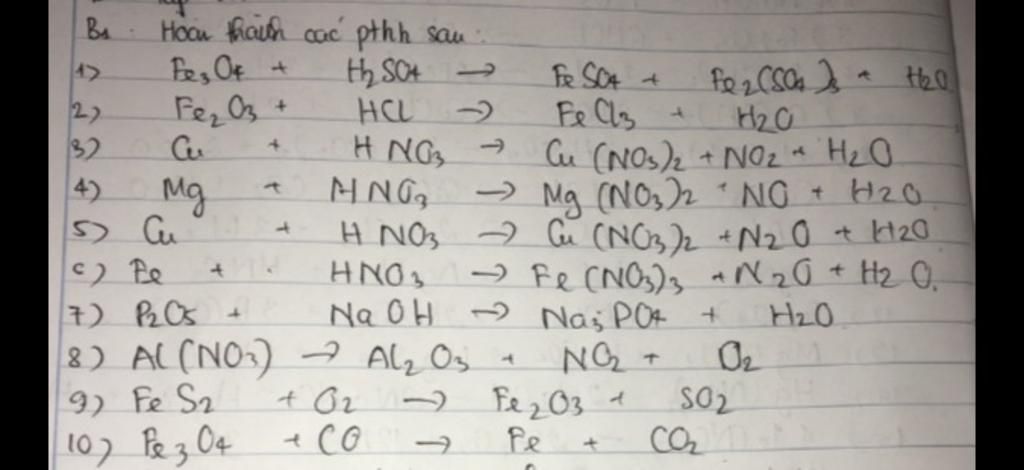 B1: Hoàn thành các pthh sau:
1) Fe3O4 + H2SO4 → FeSO4 + Fe2(SO4)3 + H2O
2) Fe2O3 + HCl → FeCl3 + H2O
3) Cu + HNO3 → Cu(NO3)2 + NO2 + H2O
4) Mg + HNO3 → Mg(NO3)2 + NO + H2O
5) Cu + HNO3 → Cu(NO3)2 + N2O + H2O
6) Fe + HNO3 → Fe(NO3)3 + N2O + H2O.
7) P2O5 + NaOH → Na3PO4 + H2O
8) Al(NO3) → Al2O3 + NO2 + O2
9) FeS2 + O2 → Fe2O3 + SO2
10) Fe3O4 + CO → Fe + CO2